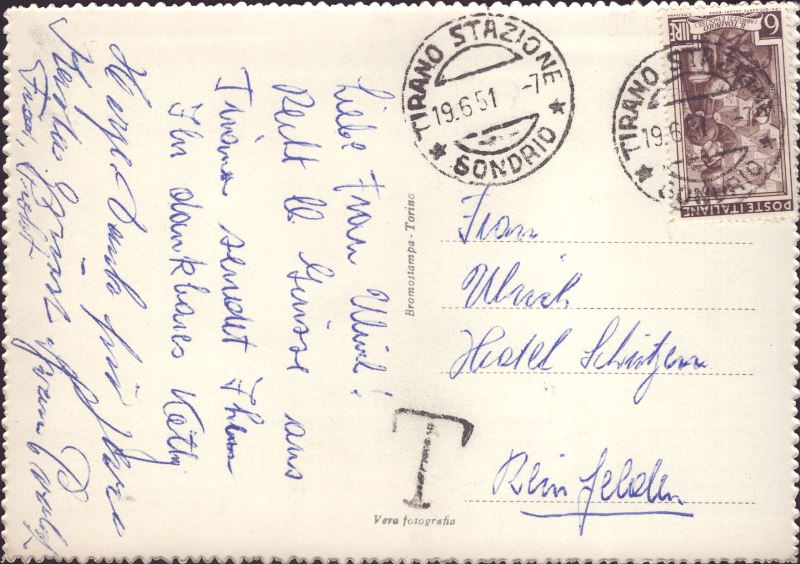 Liebe Frau Ulrich!
Recht lb. Grüsse aus
Tirano sendet Ihnen
Ihr dankbares Käthy
Herzl. Dank für Ihre
TIRANO STAZIONE
19.6.51 -7
SONDRIO
TIRANO STAZIONE
19.6.51
SONDRIO
6
LIRE
POSTE ITALIANE
Bromostampa - Torino
Frau
Ulrich
Hotel Schützen
Rheinfelden
T
Vera fotografia